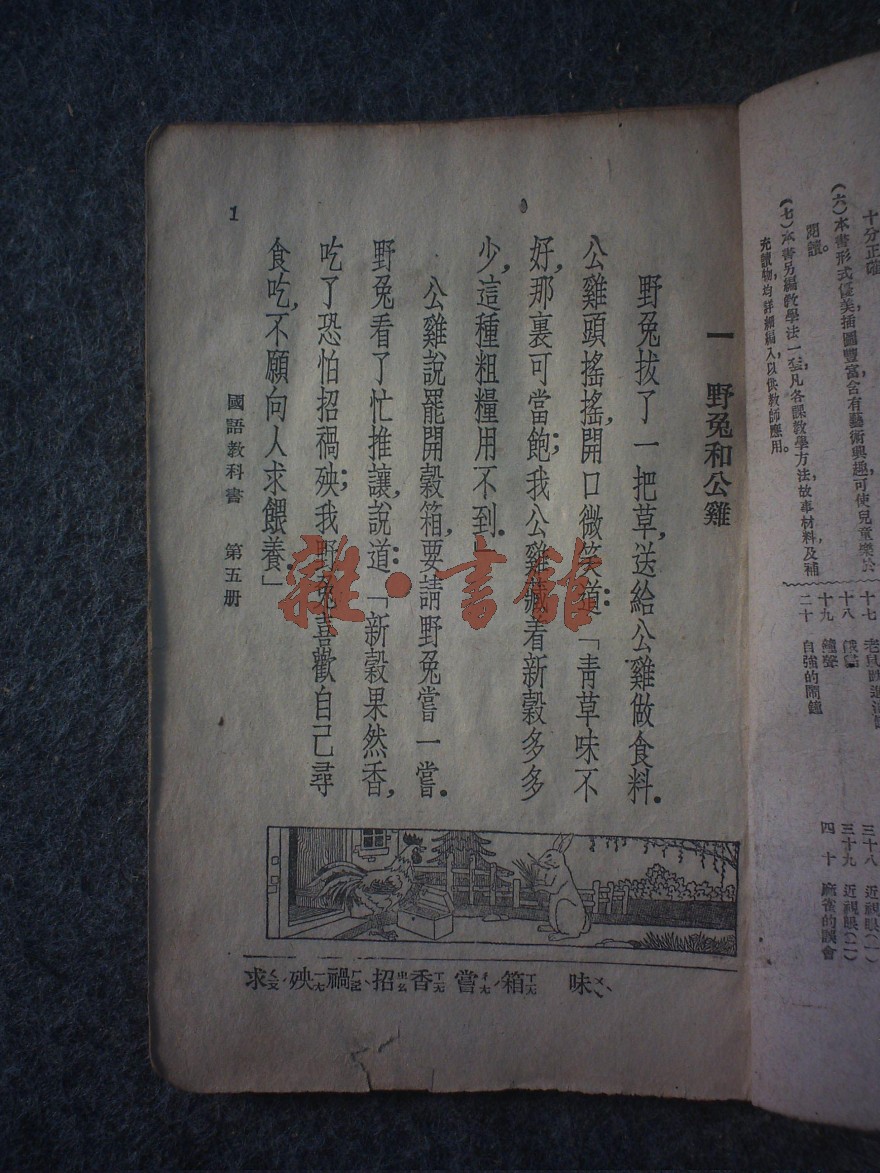 十分正確
(六)本書形式優美,插圖豐富,含有藝術興趣,可使兒童樂於
閱讀。
(七)本書另編教學法一套,凡各課教學方法,故事材料,及補
充讀物,均詳細編入,以供教師應用。
十七
十八
十九 鐘聲
二十 自強的鬧鐘
三十八 近視眼(一)
三十九 近視眼(二)
四十 麻雀的誤會
一 野兔和公雞
野兔拔了一把草,送給公雞做食料.
公雞頭搖搖,開口微笑道:「青草味不
好,那裏可當飽;我公雞藏着新穀多多
少,這種粗糧用不到.」
公雞說罷開穀箱,要請野兔嘗一嘗.
野兔看了忙推讓,說道:「新穀果然香,
吃了恐怕招禍殃;我野兔喜歡自己尋
食吃,不願向人求餵養.」
國語教科書 第五册
1
味ㄨㄟˋ 箱ㄒㄧㄤ 嘗ㄔㄤˊ 香ㄒㄧㄤ 招ㄓㄠ 禍ㄏㄨㄛˋ 殃ㄧㄤ 求ㄑㄧㄡˊ
雜·書館